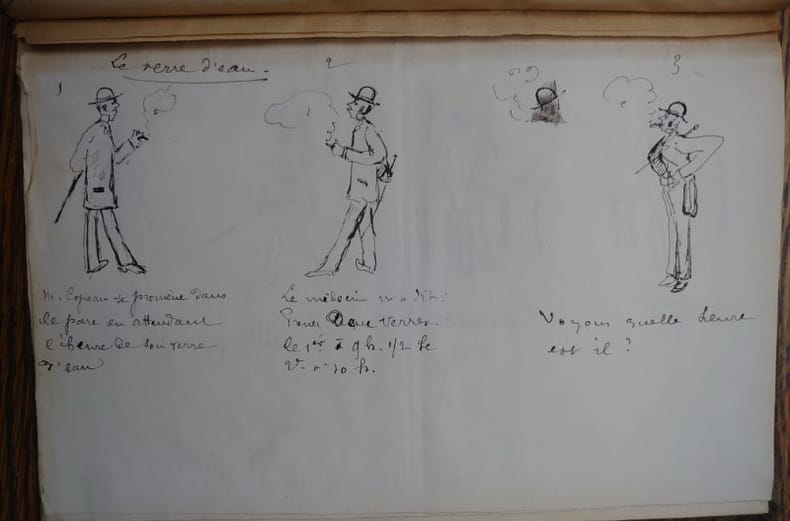 Le verre d'eau.
1
M. Copeau se promène dans
le parc en attendant
l'heure de son verre
d'eau
2
Le médecin m'a dit:
Prenez Deux verres.
le 1er à 9h. 1/2 le
à 10 h.
3
Voyons quelle heure
est il?